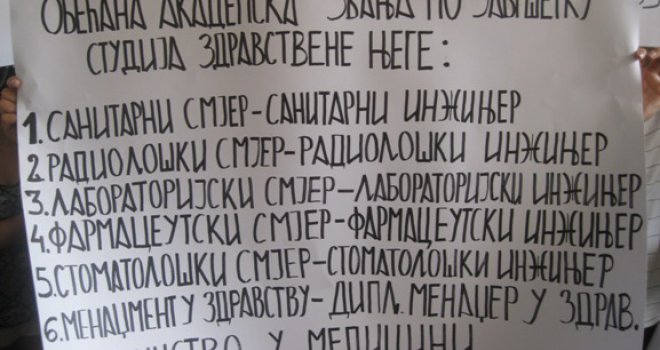 ОБЕЋАНА АКАДЕМСКА ЗВАЊА ПО ЗАВРШЕТКУ
СТУДИЈА ЗДРАВСТВЕНЕ ЊЕГЕ:
1. САНИТАРНИ СМЈЕР-САНИТАРНИ ИНЖИЊЕР
2. РАДИОЛОШКИ СМЈЕР-РАДИОЛОШКИ ИНЖИЊЕР
3. ЛАБОРАТОРИЈСКИ СМЈЕР-ЛАБОРАТОРИЈСКИ ИНЖИЊЕР
4. ФАРМАЦЕУТСКИ СМЈЕР-ФАРМАЦЕУТСКИ ИНЖИЊЕР
5. СТОМАТОЛОШКИ СМЈЕР-СТОМАТОЛОШКИ ИНЖИЊЕР
6. МЕНАЏМЕНТ У ЗДРАВСТВУ-ДИПЛ. МЕНАЏЕР У ЗДРАВ.
У МЕДИЦИНИ